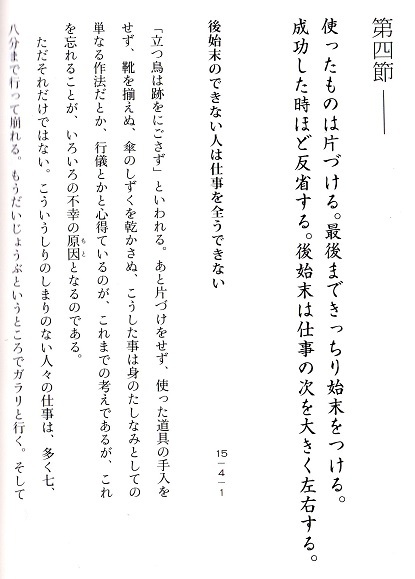 第四節――
使ったものは片づける。最後まできっちり始末をつける。
成功した時ほど反省する。後始末は仕事の次を大きく左右する。
15-4-1
後始末のできない人は仕事を全うできない
「立つ鳥は跡をにごさず」といわれる。あと片づけをせず、使った道具の手入を
せず、靴を揃えぬ、傘のしずくを乾かさぬ、こうした事は身のたしなみとしての
単なる作法だとか、行儀とかと心得ているのが、これまでの考えであるが、これ
を忘れることが、いろいろの不幸の原因もととなるのである。
ただそれだけではない。こういうしりのしまりのない人々の仕事は、多く七、
八分まで行って崩れる。もうだいじょうぶというところでガラリと行く。そして